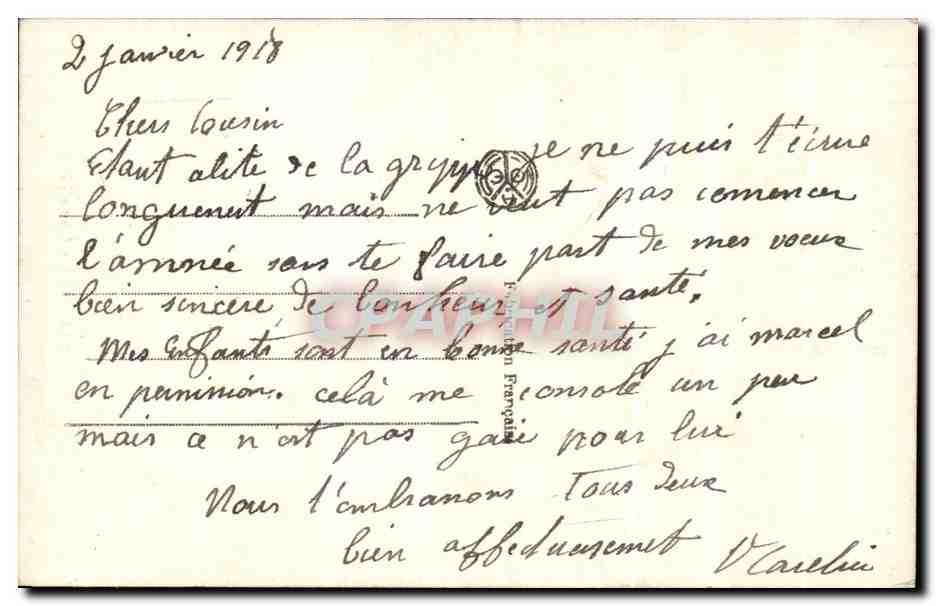 2 Janvier 1918
Chers Cousin
Etant alité de la grippe je ne puis t'écrire
longuement mais ne veut pas comencer
l'année sans te faire part de mes voeux
bien sincère de bonheur et santé.
Mes Enfants sont en bonne santé j'ai marcel
en permission. celà me console un peu
mais ce n'est pas gaie pour lui
Nous t'embrassons tous deux
bien affectueusemet
Fabrication Française
CPAPHIL